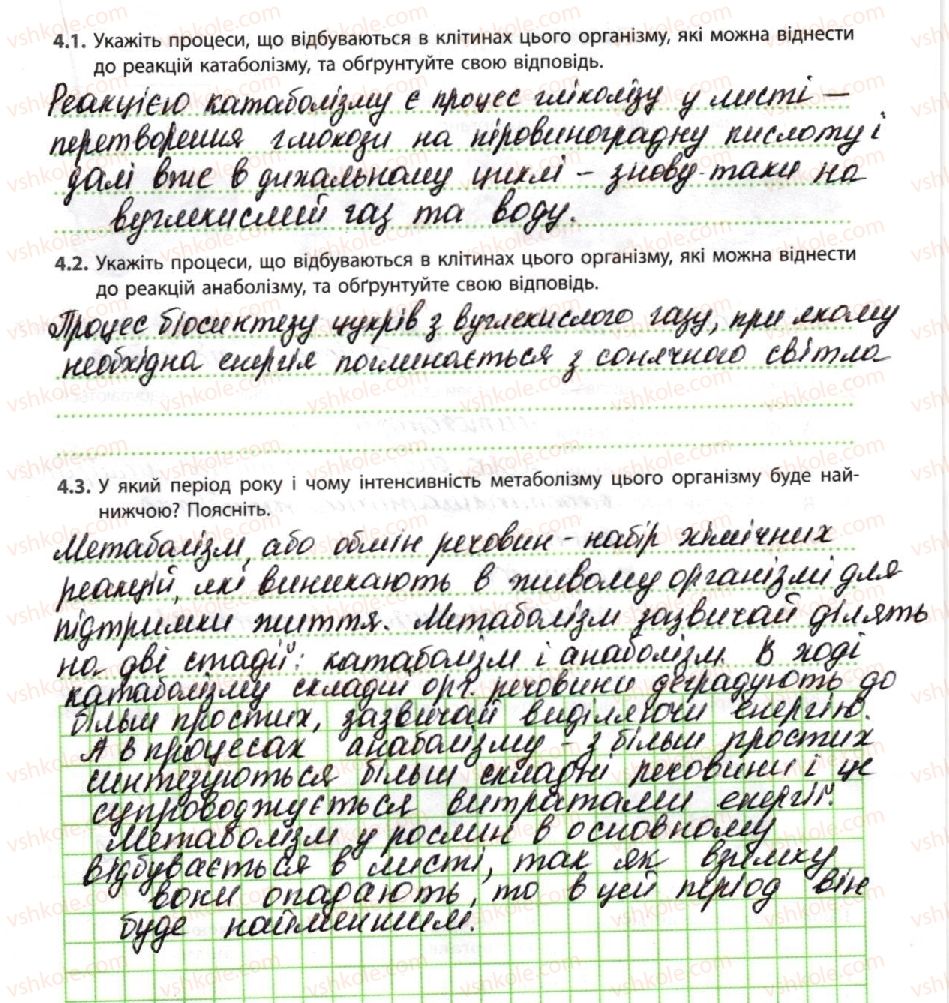 4.1. Укажіть процеси, що відбуваються в клітинах цього організму, які можна віднести
до реакцій катаболізму, та обґрунтуйте свою відповідь.
Реакцією катаболізму є процес гліколізу у листі –
перетворення глюкози на піровиноградну кислоту і
далі вже в дихальному циклі – знову-таки на
вуглекислий газ та воду.
4.2. Укажіть процеси, що відбуваються в клітинах цього організму, які можна віднести
до реакцій анаболізму, та обґрунтуйте свою відповідь.
Процес біосинтезу цукрів з вуглекислого газу, при якому
необхідна енергія поглинається з сонячного світла
4.3. У який період року і чому інтенсивність метаболізму цього організму буде най-
нижчою? Поясніть.
Метаболізм, або обмін речовин – набір хімічних
реакцій, які виникають в живому організмі для
підтримки життя. Метаболізм зазвичай ділять
на дві стадії: катаболізм і анаболізм. В ході
катаболізму складні орг. речовини деградують до
більш простих, зазвичай виділяючи енергію.
А в процесах анаболізму – з більш простих
синтезуються більш складні речовини і це
супроводжується витратами енергії.
Метаболізм у рослин в основному
відбувається в листі, так як взимку
вони опадають, то в цей період він
буде найменшим.